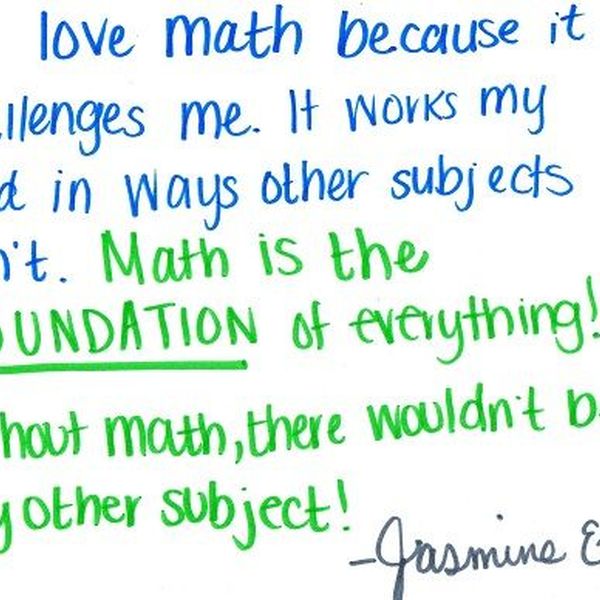 love math because it
llenges me. It works my
d in ways other subjects
n't. Math is the
OUNDATION of everything!
hout math, there wouldn't b
y other subject!
-Jasmine E